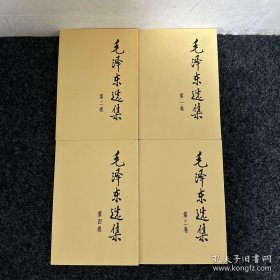 毛泽东选集
第二卷
毛泽东选集
第一卷
毛泽东选集
第四卷
毛泽东选集
第三卷
孔夫子旧书网